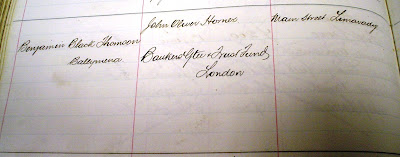 John Oliver Horner
Main Street Limavady
Benjamin Black Thomson
Ballymena
Bankers Gtee & Trust Fund
London